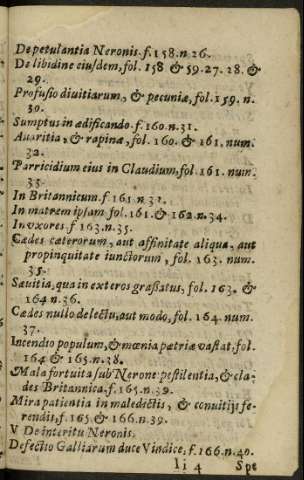 De petulantia Neronis. f. 158. n. 26.
De libidine eiusdem, fol. 158 & 59. 27. 28. &
29.
Profusio diuitiarum, & pecuniæ, fol. 159. n.
30.
Sumptus in ædificando. f. 160. n. 31.
Auaritia, & rapinæ, fol. 160. & 161. num.
32.
Parricidium eius in Claudium, fol. 161. num.
33.
In Britannicum. f. 161. n. 33.
In matrem ipsam fol. 161. & 162. n. 34.
In vxores. f. 163. n. 35.
Cædes cæterorum, aut affinitate aliqua, aut
propinquitate iunctorum, fol. 163. num.
35.
Sæuitia, qua in exteros grassatus, fol. 163. &
164 n. 36.
Cædes nullo delectu, aut modo, fol. 164. num.
37.
Incendio populum, & mœnia patriæ vastat, fol.
164 & 165. n. 38.
Mala fortuita sub Nerone: pestilentia, & cla-
des Britannica. f. 165. n. 39.
Mira patientia in maledictis, & conuitijs fe-
rendis, f. 165 & 166. n. 39.
V De interitu Neronis.
Defectio Galliarum duce Vindice, f. 166. n. 40.
Ii 4 Spe